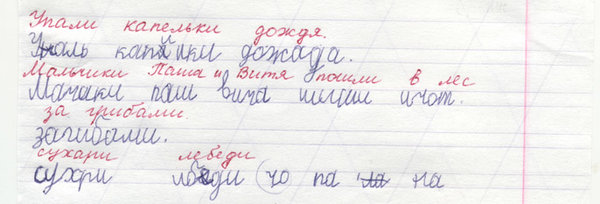 Упали капельки дождя.
Упаль капйлки дожада.
Мальчики Паша и Витя пошли в лес
Мачаки паш вича шишли ичот.
за грибами
загибами.
сухари лебеди
сухри лбеди чо па на